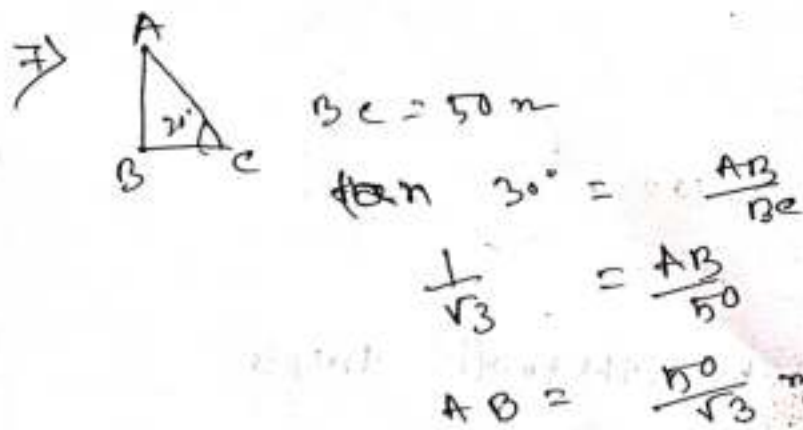 7)
A
B
C
30°
BC = 50 m
tan 30° = AB/BC
1/√3 = AB/50
AB = 50/√3 m